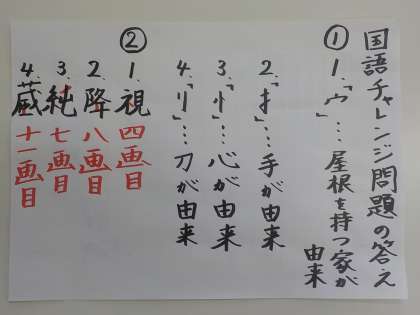 国語チャレンジ問題の答え
①
1.「宀」…屋根を持つ家が
由来
2.「扌」…手が由来
3.「忄」…心が由来
4.「刂」…刀が由来
②
1.視 四画目
2.降 八画目
3.純 七画目
4.蔵 十一画目